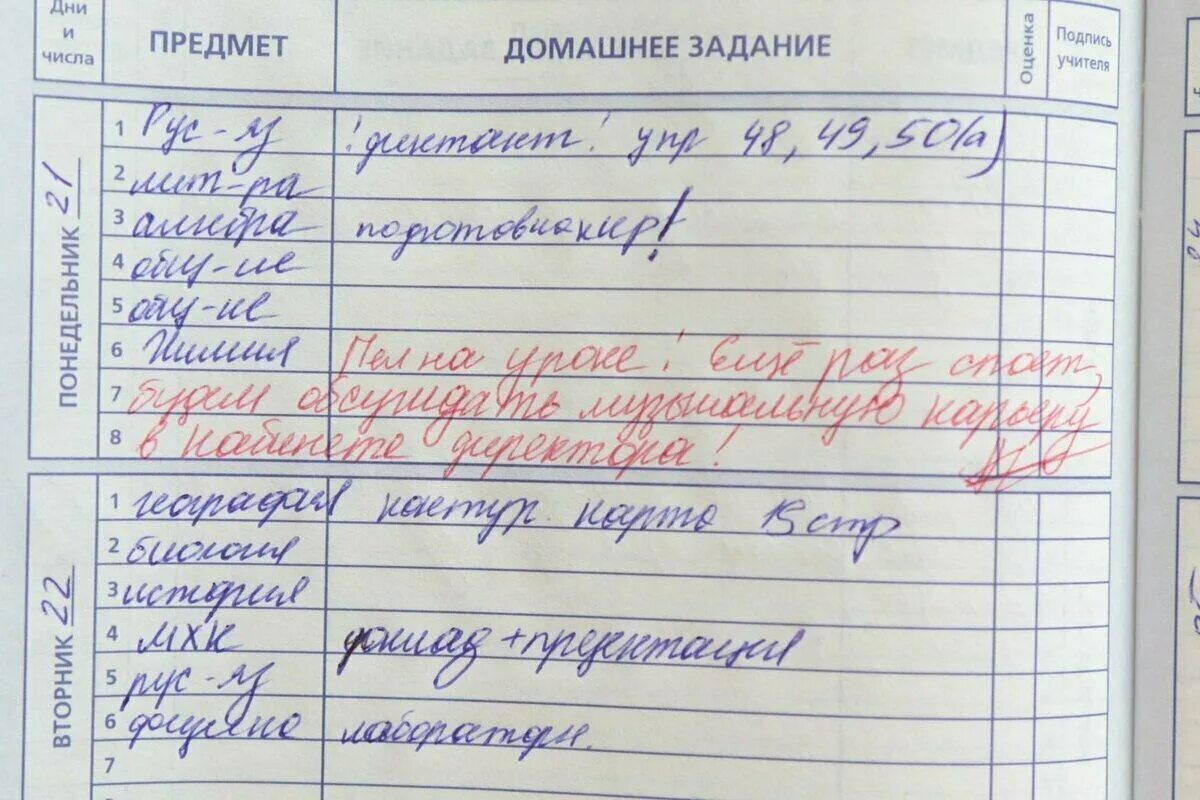 Дни и числа
ПРЕДМЕТ
ДОМАШНЕЕ ЗАДАНИЕ
Оценка
Подпись учителя
ПОНЕДЕЛЬНИК 21
1 Рус-яз ! диктант! упр 48, 49, 50(а)
2 лит-ра
3 алгебра подготов. на к.р!
4 общ-ие
5 общ-ие
6 Химия Пел на уроке! Ещё раз споет,
7 будем обсуждать музыкальную карьеру
8 в кабинете директора!
ВТОРНИК 22
1 география контур. карта 13 стр
2 биология
3 история
4 МХК доклад + презентация
5 рус-яз
6 физика лаборатор.
7